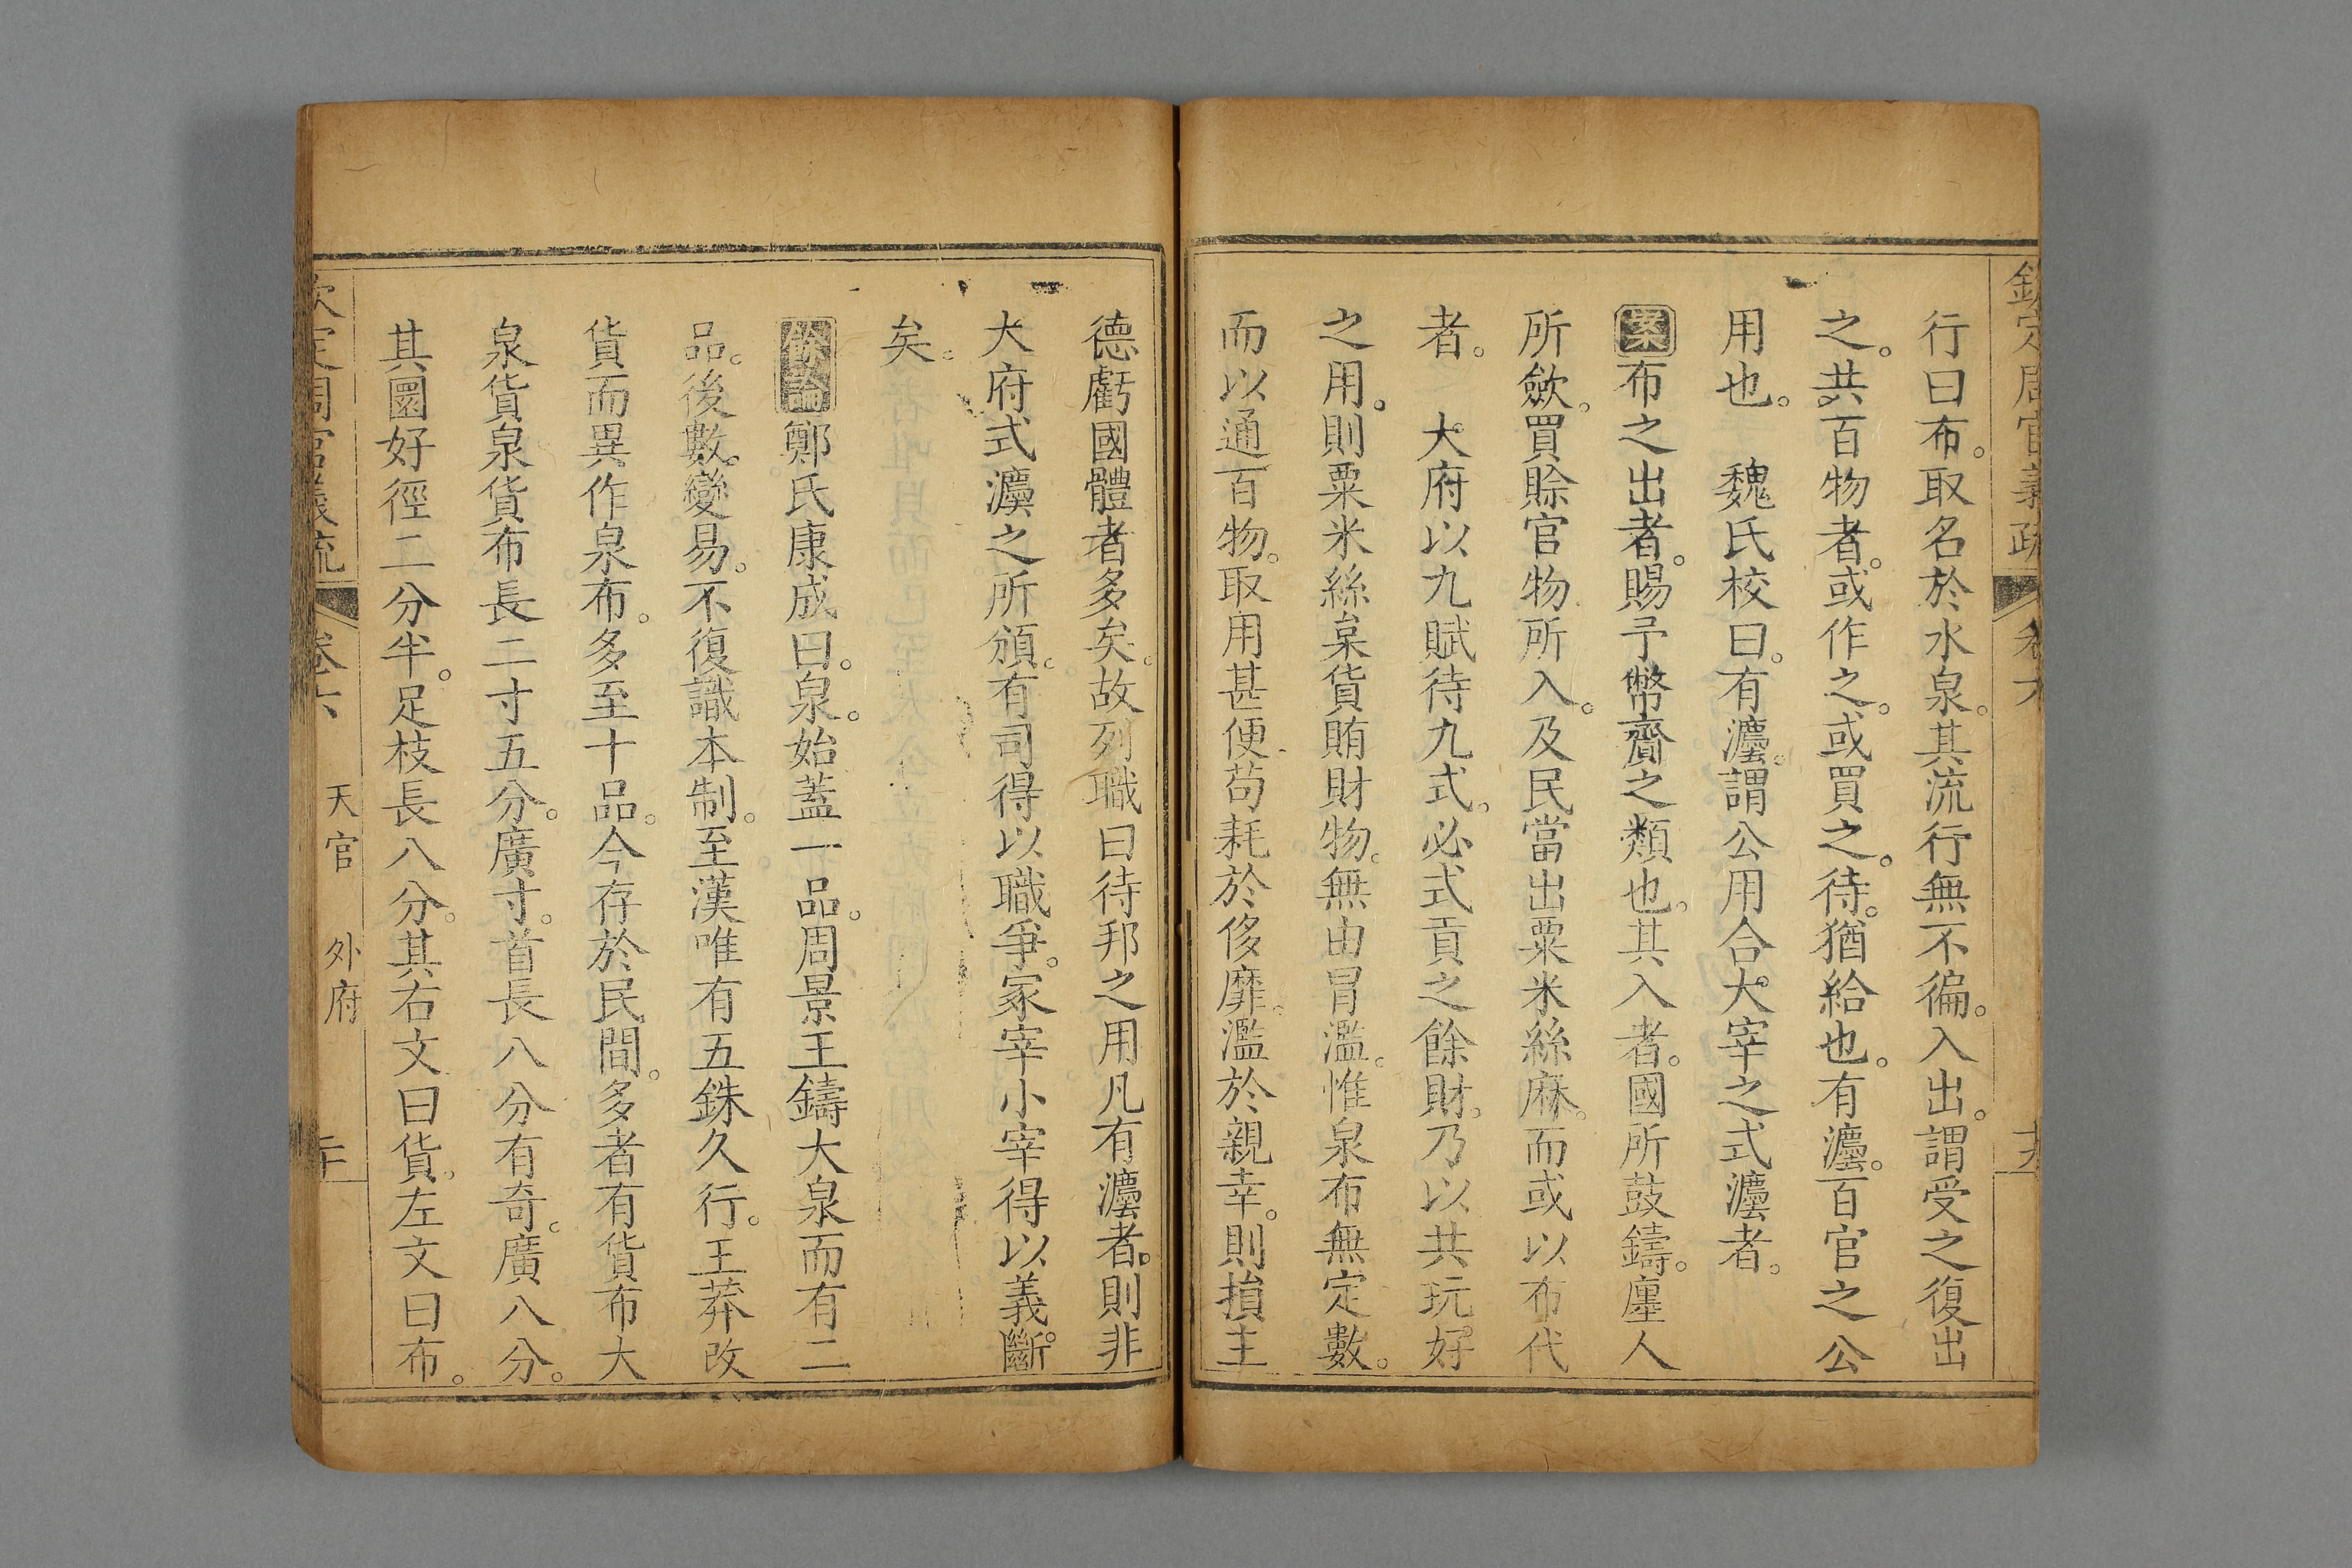 欽定周官義疏 卷六 十九
行曰布。取名於水泉。其流行無不徧。入出。謂受之復出
之。共百物者。或作之。或買之。待。猶給也。有灋。百官之公
用也。　魏氏校曰。有灋。謂公用合大宰之式灋者。
案布之出者。賜予幣齎之類也。其入者。國所鼓鑄。廛人
所歛。買賖官物所入。及民當出粟米絲麻。而或以布代
者。　大府以九賦待九式。必式貢之餘財。乃以共玩好
之用。則粟米絲枲貨賄財物。無由冐濫。惟泉布無定數。
而以通百物。取用甚便。苟耗於侈靡。濫於親幸。則損主
德虧國體者多矣。故列職曰待邦之用凡有灋者。則非
大府式灋之所頒。有司得以職爭。冢宰小宰得以義斷
矣。
餘論鄭氏康成曰。泉。始蓋一品。周景王鑄大泉而有二
品。後數變易。不復識本制。至漢唯有五銖久行。王莽改
貨而異作泉布。多至十品。今存於民間。多者有貨布大
泉貨泉貨布長二寸五分。廣寸。首長八分有奇。廣八分。
其圜好徑二分半。足枝長八分。其右文曰貨。左文曰布。
欽定周官義疏 卷六 天官 外府 二十